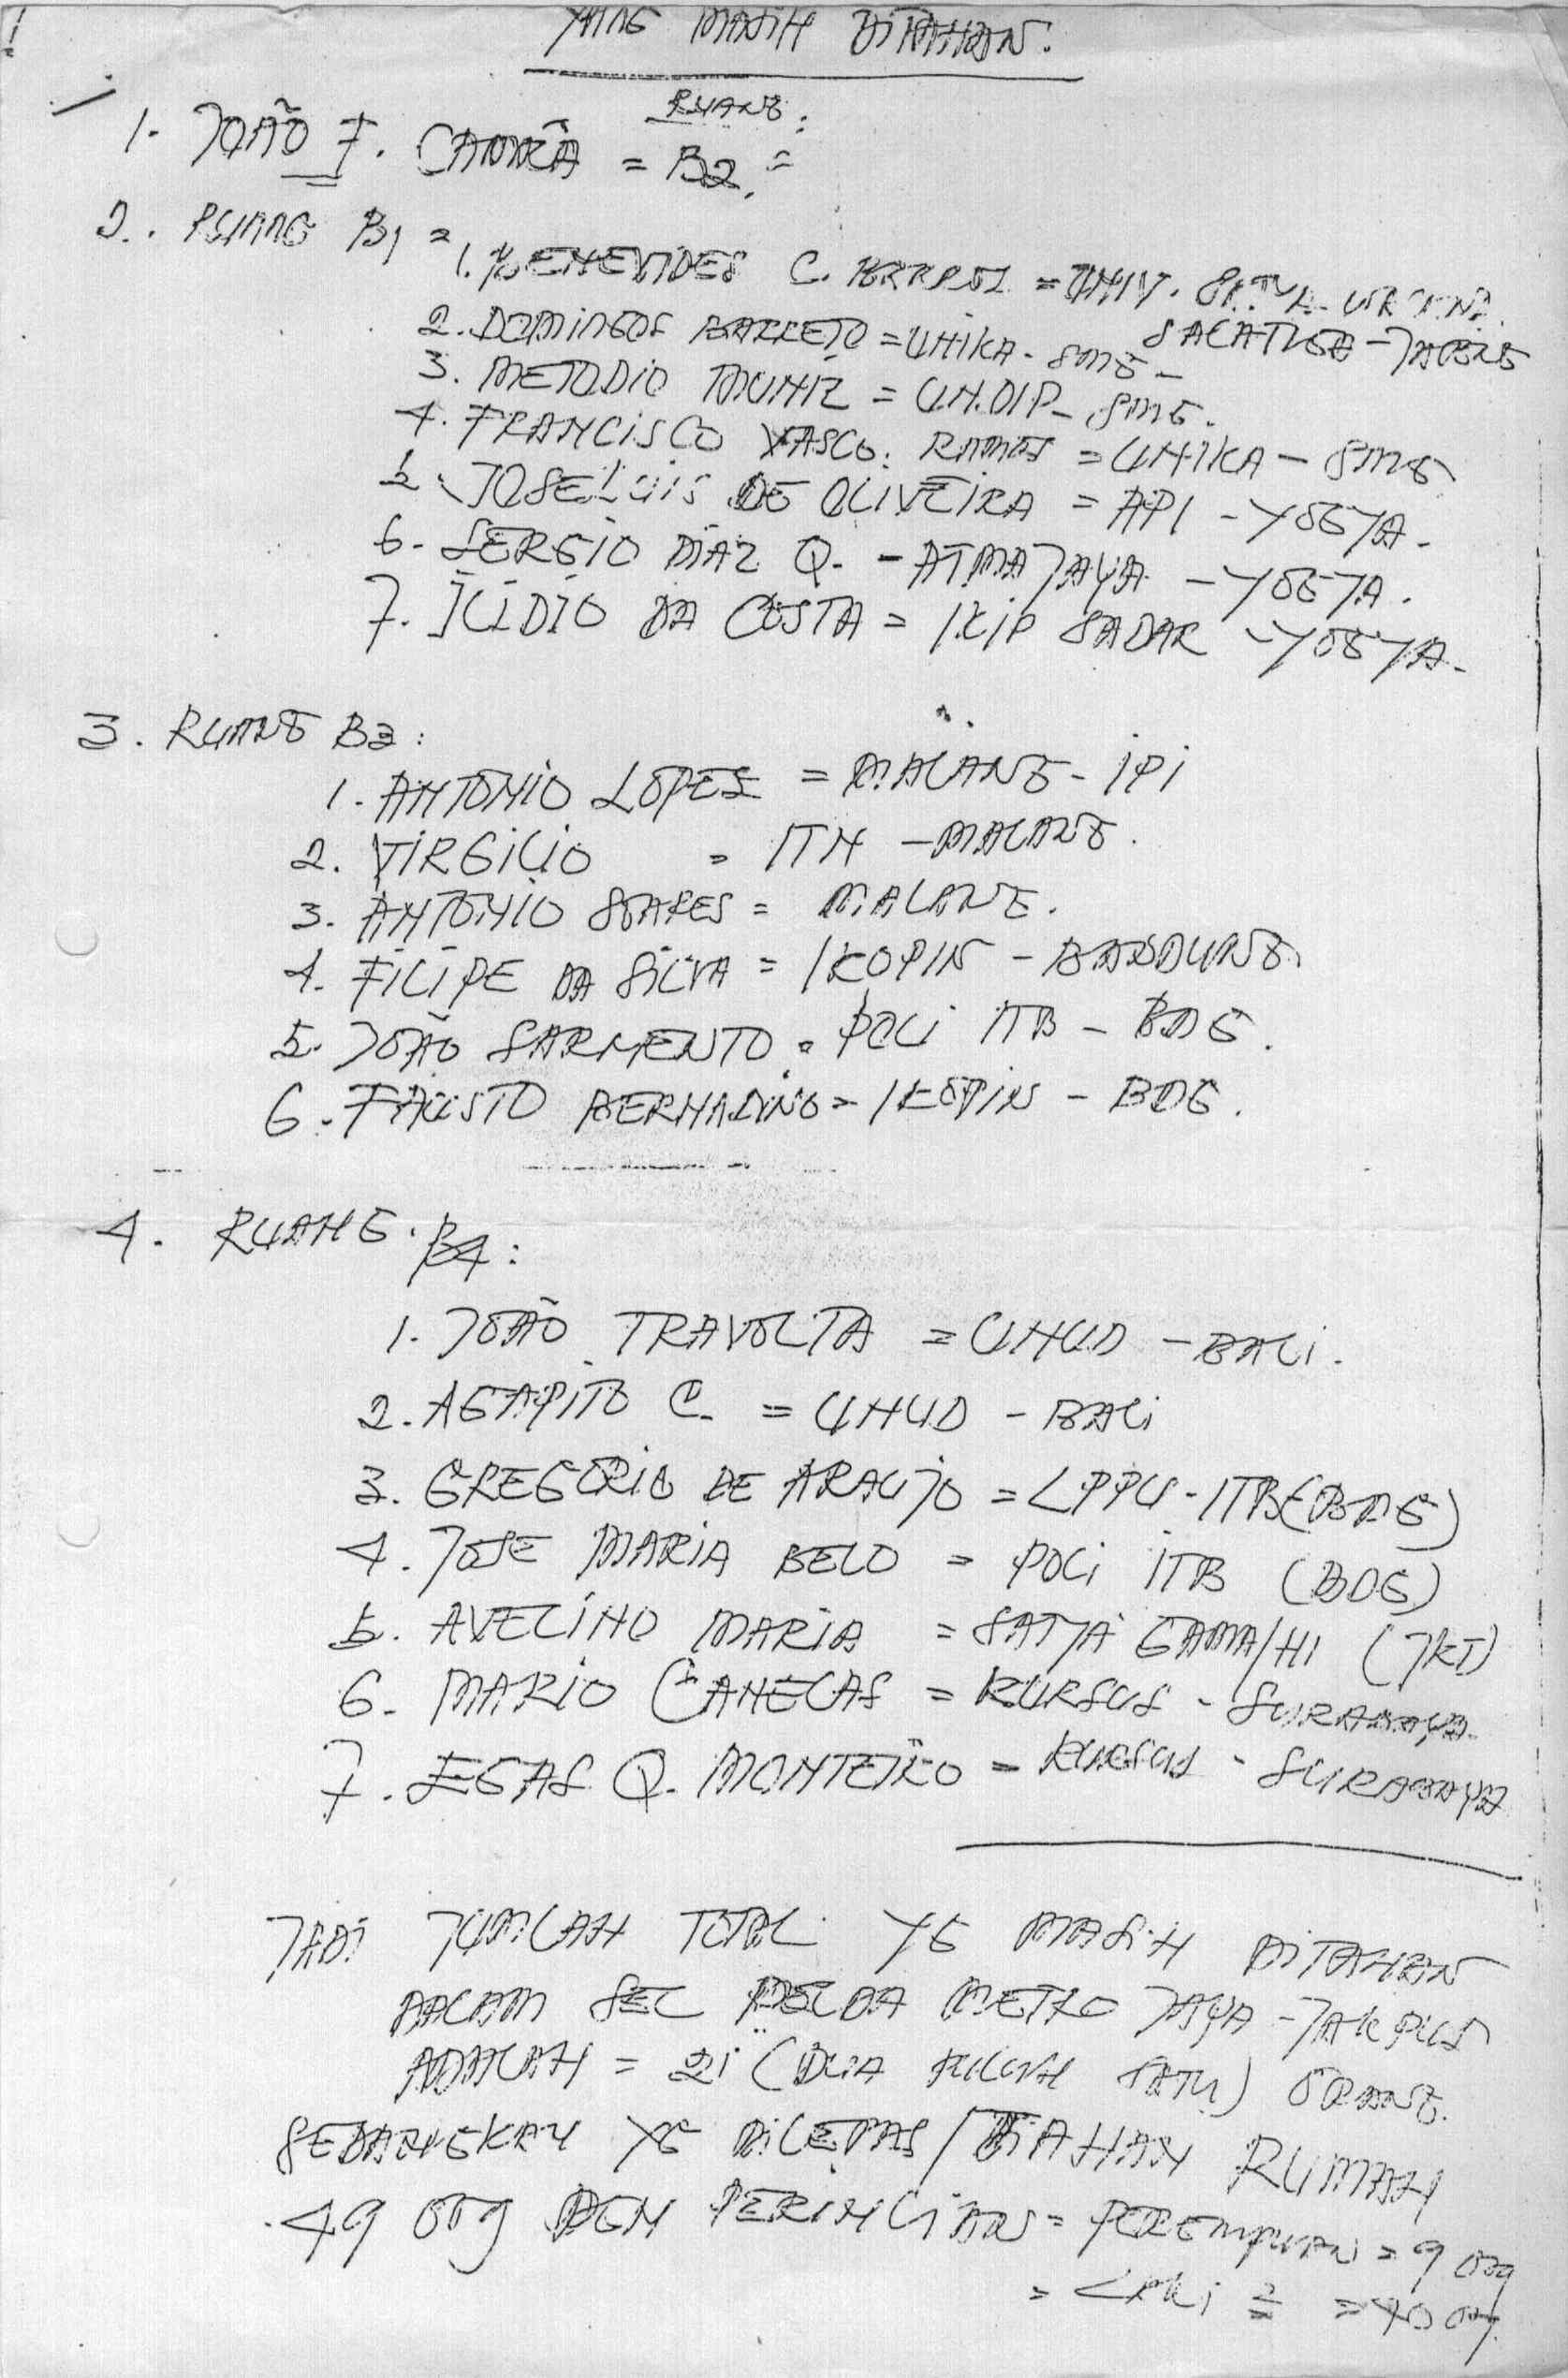 YANG MASIH DITAHAN.
RUANG:
1. JOÃO F. CAMARA = B2.=
2. RUANG B1 =
1. BENEVIDES C. BARROS = UNIV.
SALATIGA - JATENG
2. DOMINGOS BARRETO = UNIKA - SMG -
3. METODIO MUNIZ = UNDIP - SMG.
4. FRANCISCO VASCO. RAMOS = UNIKA - SMG
5. JOSE LUIS DE OLIVEIRA = API - YOGYA.
6. SERGIO DIAZ Q. - ATMA JAYA - YOGYA.
7. ILIDIO DA COSTA = IKIP SADAR - YOGYA.
3. RUANG B3:
1. ANTONIO LOPES = MALANG - IPI
2. VIRGILIO = ITN - MALANG.
3. ANTONIO SOARES = MALANG.
4. FILIPE DA SILVA = IKOPIN - BANDUNG
5. JOÃO SARMENTO = POLI ITB - BDG.
6. FAUSTO BERNADINO = IKOPIN - BDG.
4. RUANG. B4:
1. JOÃO TRAVOLTA = UNUD - BALI.
2. AGAPITO C. = UNUD - BALI
3. GREGORIO DE ARAUJO = LPPU - ITB (BDG)
4. JOSE MARIA BELO = POLI ITB (BDG)
5. AVELINO MARIA = SATYA GAMA/HI (JKT)
6. MARIO CANECAS = KURSUS - SURABAYA
7. EGAS Q. MONTEIRO = KURSUS - SURABAYA
JADI JUMLAH TOTAL YG MASIH DITAHAN
DALAM SEL POLDA METRO JAYA - JAKPUS
ADALAH = 21 (DUA PULUH SATU) ORANG.
SEDANGKAN YG DILEPAS/TAHAN RUMAH
49 ORG DGN PERINCIAN = PEREMPUAN = 9 ORG
= LAKI 2 = 40 ORG.